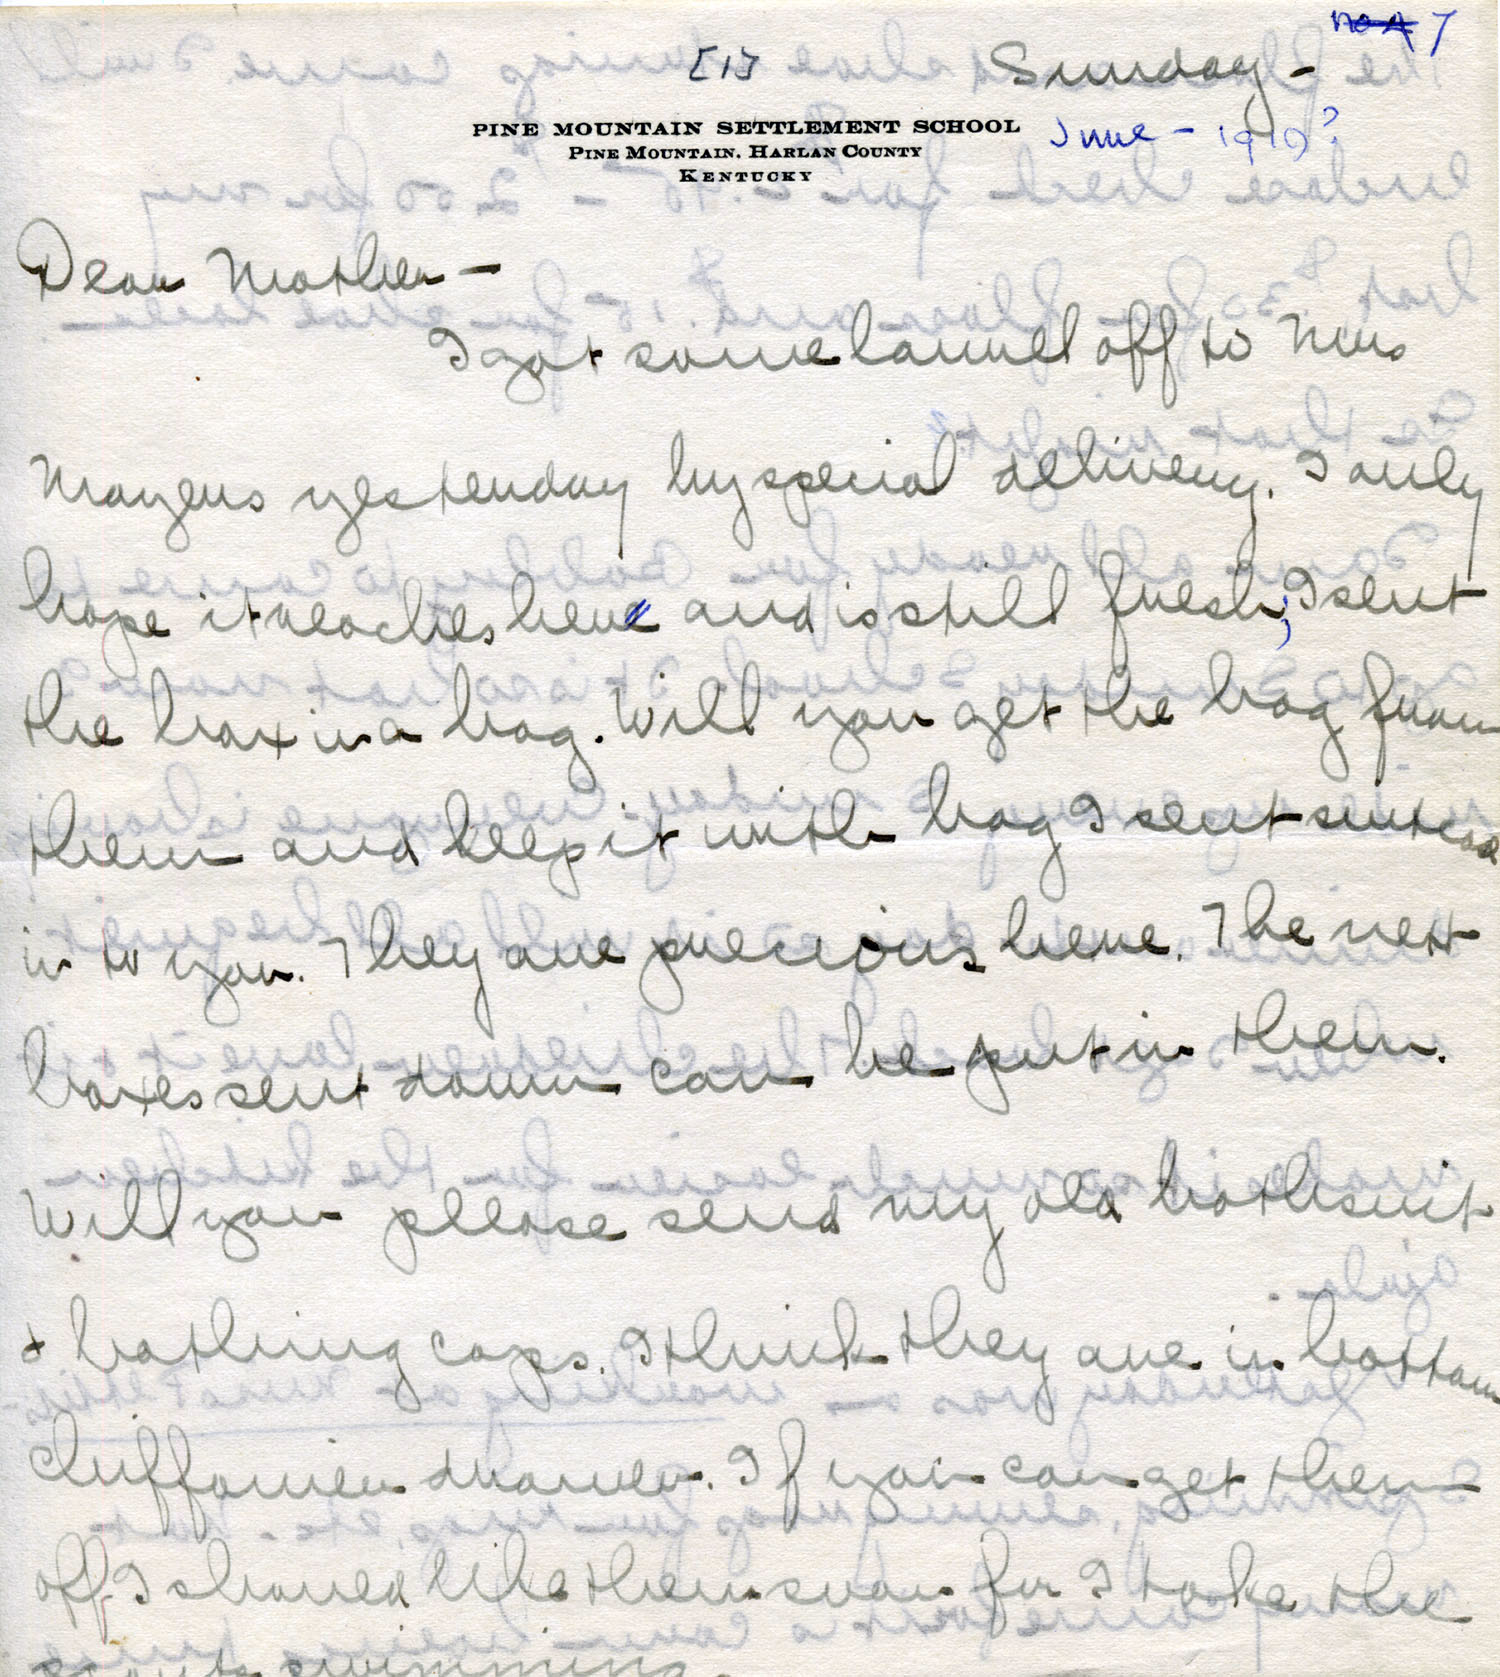 No 7
[1] Sunday -
PINE MOUNTAIN SETTLEMENT SCHOOL
June - 1919?
PINE MOUNTAIN, HARLAN COUNTY
KENTUCKY
Dear Mother -
I got some laurel off to Mrs
Mayers yesterday by special delivery. I only
hope it reaches here and is still fresh; I sent
the box in a bag. Will you get the bag from
them and keep it with bag I sent suitcase
in to you. They are precious here. The next
boxes sent down can be put in them.
Will you please send my old bathsuit
& bathing caps. I think they are in bottom
chiffonier drawer. If you can get them
off I should like them soon for I take the
scouts swimming.